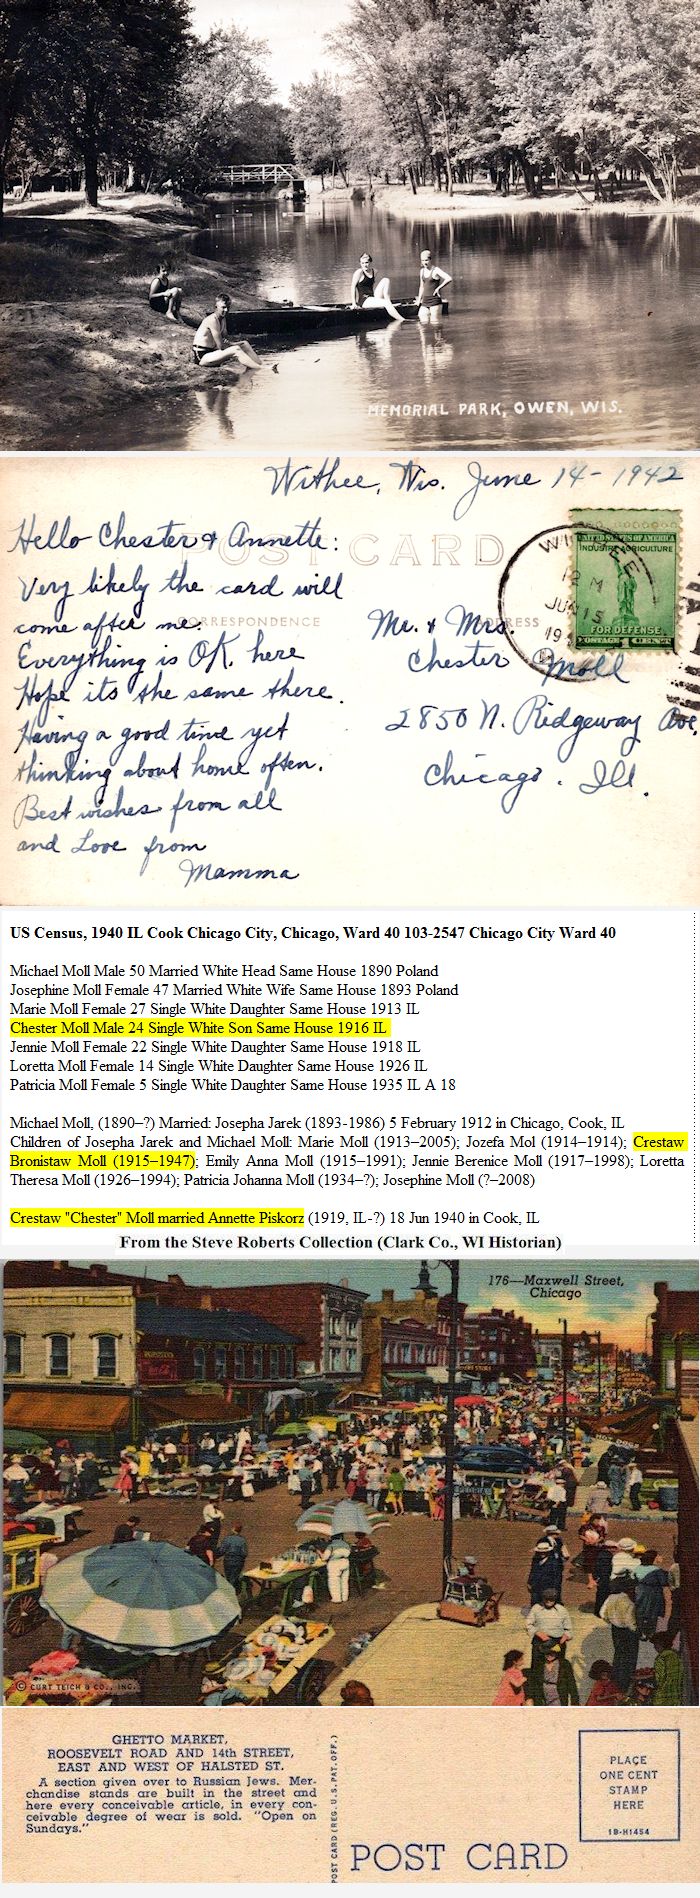 MEMORIAL PARK, OWEN, WIS.
Withee, Wis. June 14 - 1942
Hello Chester & Annette:
POST CARD
Very likely the card will
come after me.
CORRESPONDENCE
ADDRESS
Everything is OK. here
Hope its the same there.
Having a good time yet
thinking about home often.
Best wishes from all
and Love from
Mamma
UNITED STATES OF AMERICA
INDUSTRY AGRICULTURE
FOR DEFENSE
POSTAGE 1 CENT
12 M
JUN 15
Mr. & Mrs.
Chester Moll
2850 N. Ridgeway Ave,
Chicago. Ill.
US Census, 1940 IL Cook Chicago City, Chicago, Ward 40 103-2547 Chicago City Ward 40
Michael Moll Male 50 Married White Head Same House 1890 Poland
Josephine Moll Female 47 Married White Wife Same House 1893 Poland
Marie Moll Female 27 Single White Daughter Same House 1913 IL
Chester Moll Male 24 Single White Son Same House 1916 IL
Jennie Moll Female 22 Single White Daughter Same House 1918 IL
Loretta Moll Female 14 Single White Daughter Same House 1926 IL
Patricia Moll Female 5 Single White Daughter Same House 1935 IL A 18
Michael Moll, (1890–?) Married: Josepha Jarek (1893-1986) 5 February 1912 in Chicago, Cook, IL
Children of Josepha Jarek and Michael Moll: Marie Moll (1913–2005); Jozefa Mol (1914–1914); Crestaw
Bronistaw Moll (1915–1947); Emily Anna Moll (1915–1991); Jennie Berenice Moll (1917–1998); Loretta
Theresa Moll (1926–1994); Patricia Johanna Moll (1934–?); Josephine Moll (?–2008)
Crestaw "Chester" Moll married Annette Piskorz (1919, IL-?) 18 Jun 1940 in Cook, IL
From the Steve Roberts Collection (Clark Co., WI Historian)
176—Maxwell Street,
Chicago
© CURT TEICH & CO., INC.
GHETTO MARKET,
ROOSEVELT ROAD AND 14th STREET,
EAST AND WEST OF HALSTED ST.
A section given over to Russian Jews. Mer-
chandise stands are built in the street and
here every conceivable article, in every con-
ceivable degree of wear is sold. "Open on
Sundays."
POST CARD (REG. U.S. PAT. OFF.)
POST CARD
PLACE
ONE CENT
STAMP
HERE
1B-H1454